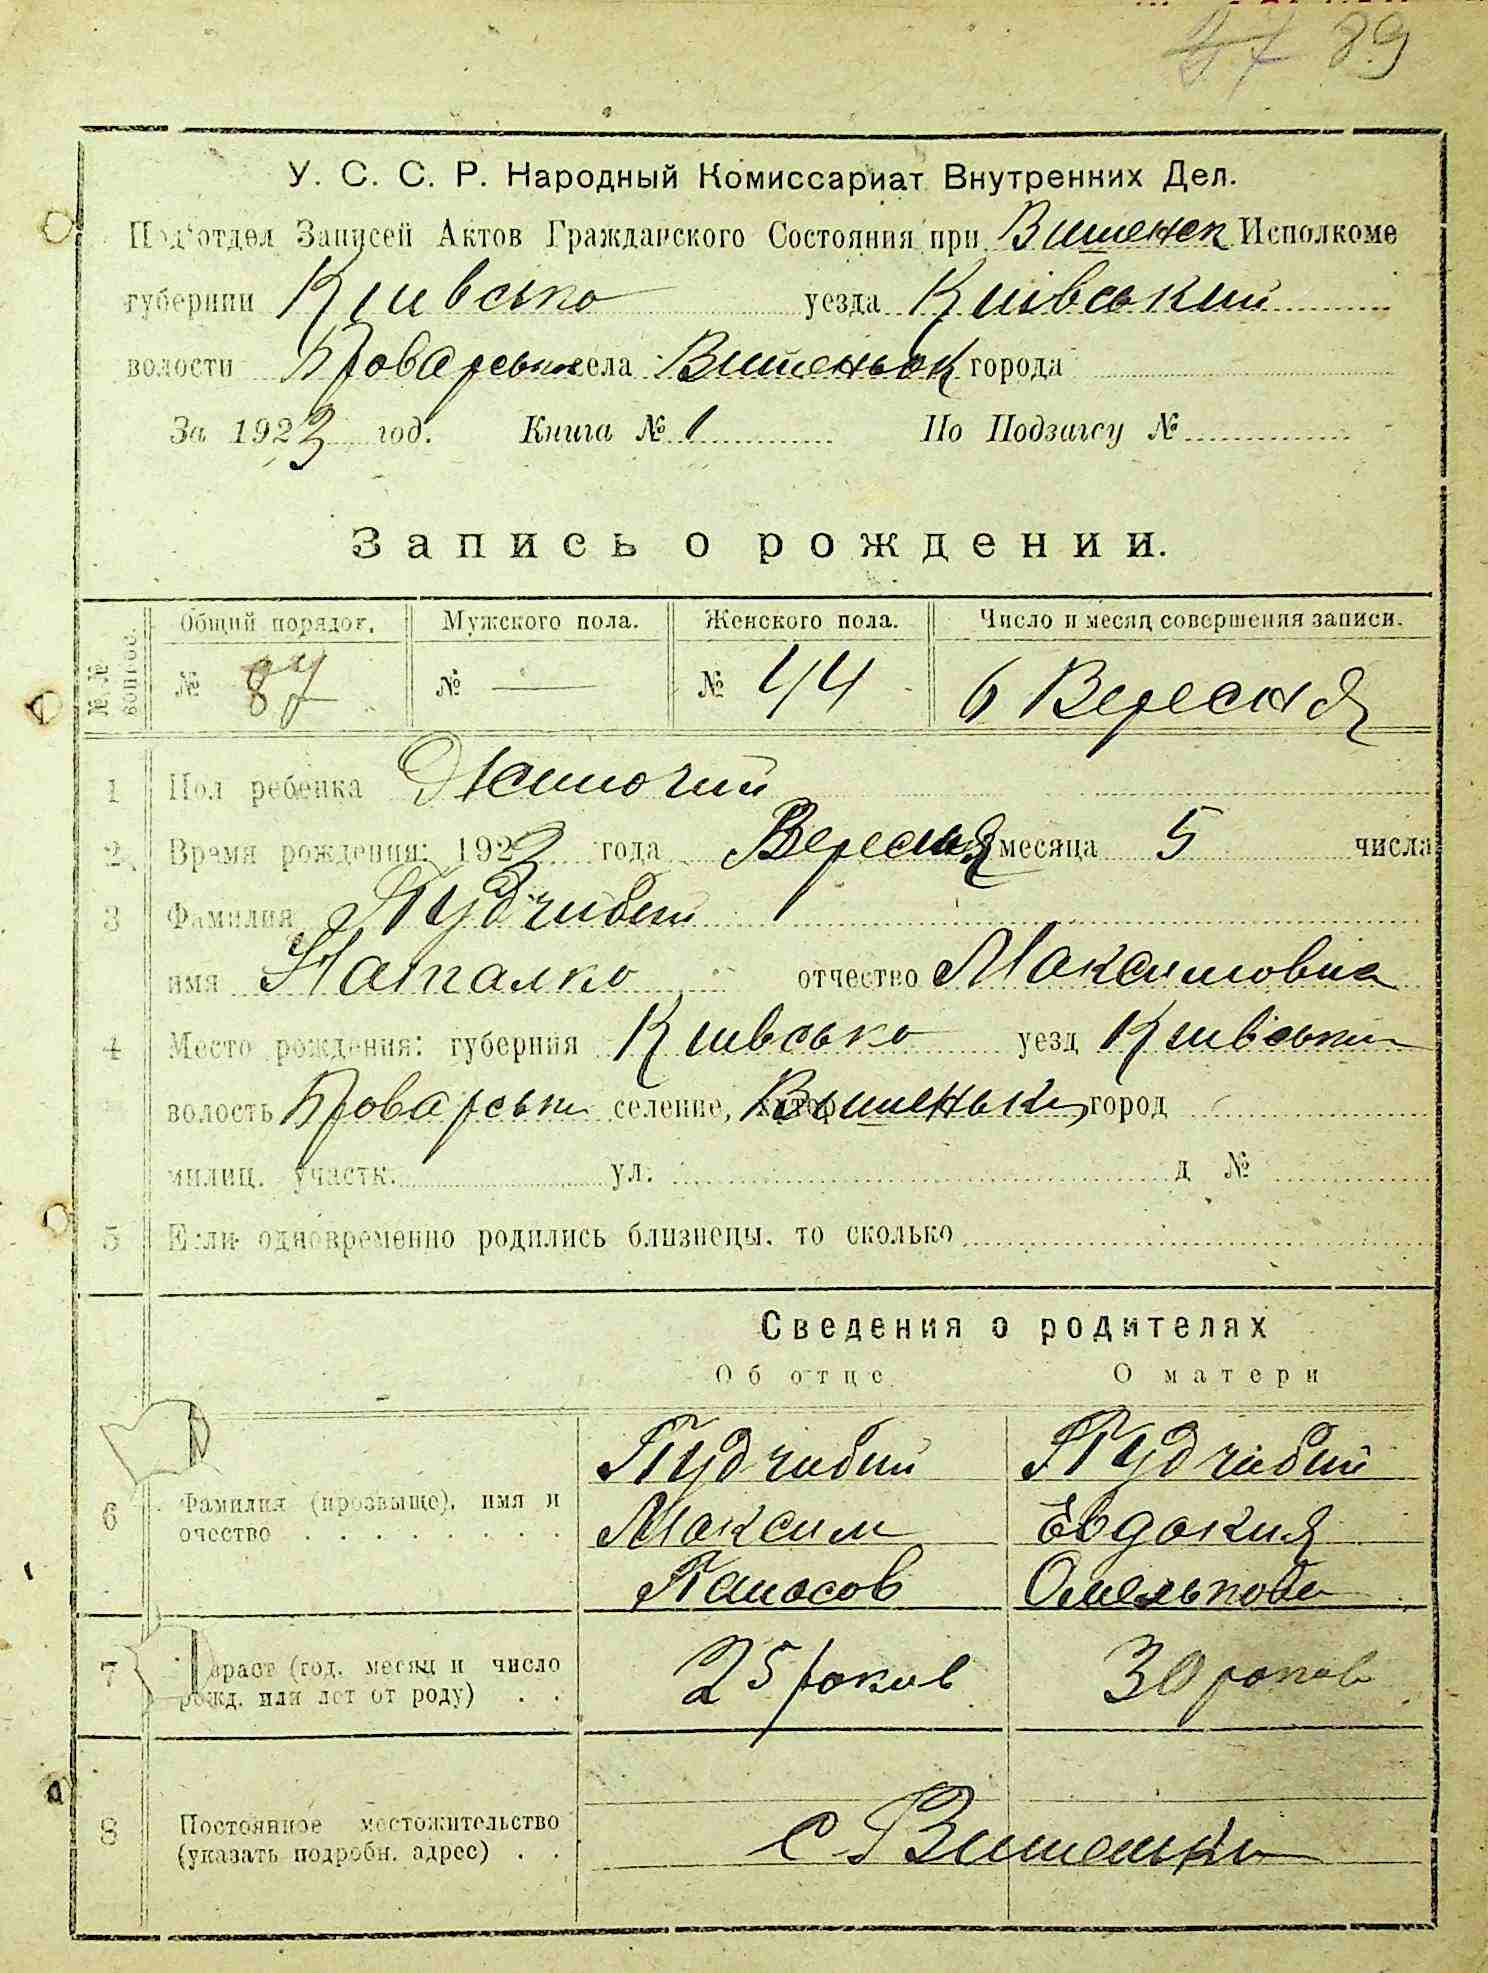 47 89
У. С. С. Р. Народный Комиссариат Внутренних Дел.
Под'отдел Записей Актов Гражданского Состояния при Вишенск Исполкоме
губернии Киівсько уезда Киівський
волости Броварськ села Вишеньок города
За 1923 год. Книга № 1 По Подзагсу №
Запись о рождении.
№№ вопрос.
Общий порядок. Мужского пола. Женского пола. Число и месяц совершения записи.
№ 87 № — № 44 6 Вересня
1 Пол ребенка Жиночий
2 Время рождения: 1923 года Вересня месяца 5 числа
3 Фамилия Пудчибий
имя Наталко отчество Максимовна
4 Место рождения: губерния Киівсько уезд Киівськи
волость Броварськи селение, хутор Вишеньки, город
милиц. участк. ул. д №
5 Если одновременно родились близнецы, то сколько
Сведения о родителях
Об отце О матери
Пудчибий Пудчибий
6 Фамилия (прозвыще), имя и
очество
Максим Евдокия
Панасов Омелькова
7 Возраст (год, месяц и число
рожд. или лет от роду)
25 років 30 років
8 Постоянное местожительство
(указать подробн. адрес)
с Вишеньки